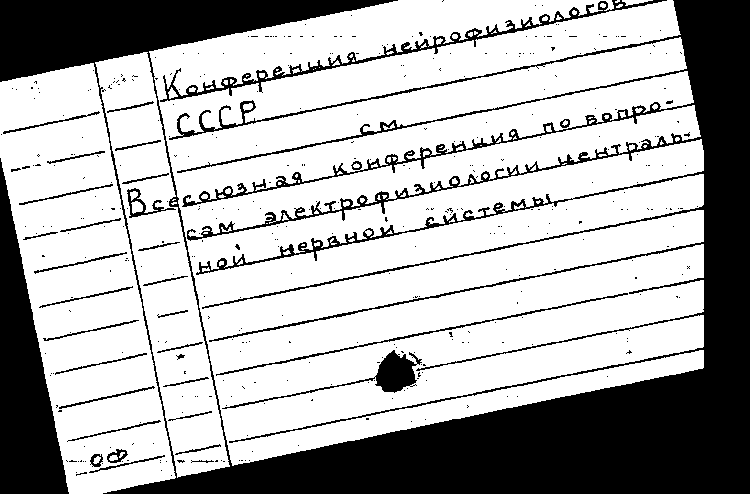 Конференция нейрофизиологов
СССР
см.
Всесоюзная конференция по вопро-
сам электрофизиологии централь-
ной нервной системы.
ОФ